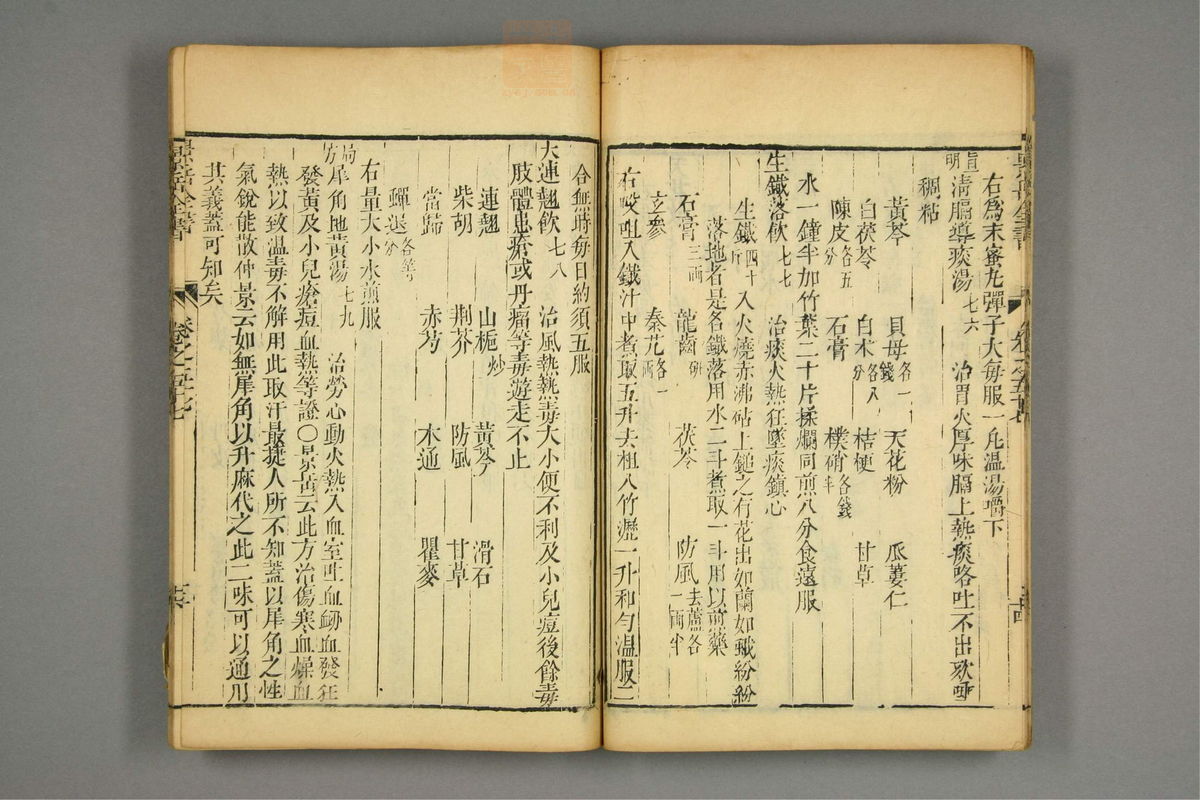 右為末蜜丸彈子大每服一丸温湯嚼下
旨明
清膈導痰湯 七六 治胃火厚味膈上熱痰咯吐不出欬唾
稠粘
黃芩 貝母各一錢 天花粉 瓜蔞仁
白茯苓 白术各八分 桔梗 甘草
陳皮各五分 石膏 樸硝各錢半
水一鐘半加竹葉二十片揉爛同煎八分食遠服
生鐵落飲 七七 治痰火熱狂墜痰鎮心
生鐵四十斤 入火燒赤沸砧上鎚之有花出如蘭如蛾紛紛
落地者是各鐵落用水二斗煮取一斗用以煎藥
石膏三兩 龍齒研 茯苓 防風去蘆各一兩半
玄參 秦艽各一兩
右㕮咀入鐵汁中煮取五升去柤入竹瀝一升和勻温服二
合無時每日約須五服
大連翹飲 七八 治風熱熱毒大小便不利及小兒痘後餘毒
肢體患瘡或丹瘤等毒遊走不止
連翹 山梔炒 黃芩 滑石
柴胡 荆芥 防風 甘草
當歸 赤芍 木通 瞿麥
蟬退各等分
右量大小水煎服
局方
犀角地黃湯 七九 治勞心動火熱入血室吐血衄血發狂
發黃及小兒瘡痘血熱等證○景岳云此方治傷寒血燥血
熱以致温毒不解用此取汗最捷人所不知蓋以犀角之性
氣銳能散仲景云如無犀角以升麻代之此二味可以通用
其義蓋可知矣
景岳全書
卷之五十七